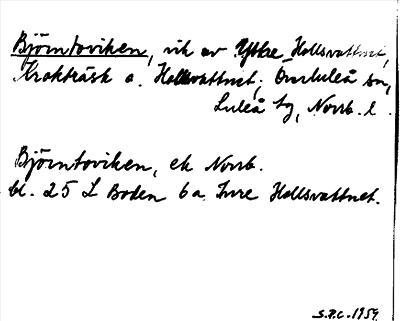 Björntoviken, vik av Yttre Hollsvattnet,
Krokträsk o. Hollsvattnet, Överluleå sn,
Luleå tg, Norrb. l.
Björntoviken, ek Norrb.
bl. 25 L Boden 6a Inre Hollsvattnet.
S.P.C. 1959